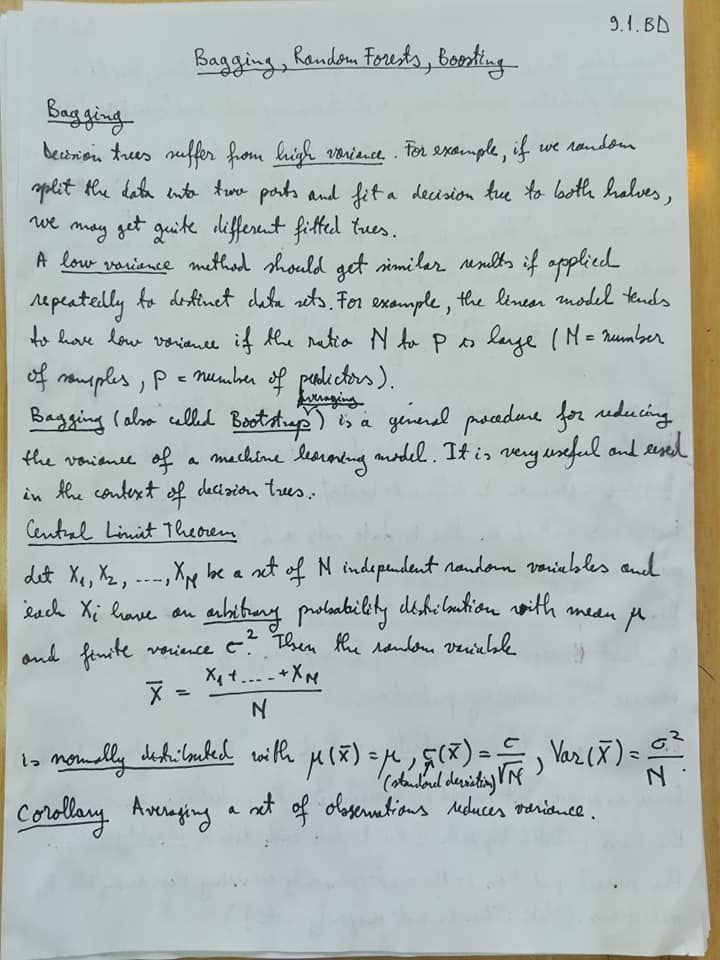 9.1.BD
Bagging, Random Forests, Boosting
Bagging
Decision trees suffer from high variance. For example, if we random
split the data into two parts and fit a decision tree to both halves,
we may get quite different fitted trees.
A low variance method should get similar results if applied
repeatedly to distinct data sets. For example, the linear model tends
to have low variance if the ratio N to P is large (N = number
of samples, P = number of predictors).
averaging
Bagging (also called Bootstrap) is a general procedure for reducing
the variance of a machine learning model. It is very useful and used
in the context of decision trees.
Central Limit Theorem
Let X₁, X₂, ...., X_N be a set of N independent random variables and
each Xᵢ have an arbitrary probability distribution with mean μ
and finite variance σ². Then the random variable
X̄ = (X₁ + ..... + X_N) / N
is normally distributed with μ(X̄) = μ, σ(X̄) = σ/√N, Var(X̄) = σ²/N.
(standard deviation)
Corollary Averaging a set of observations reduces variance.